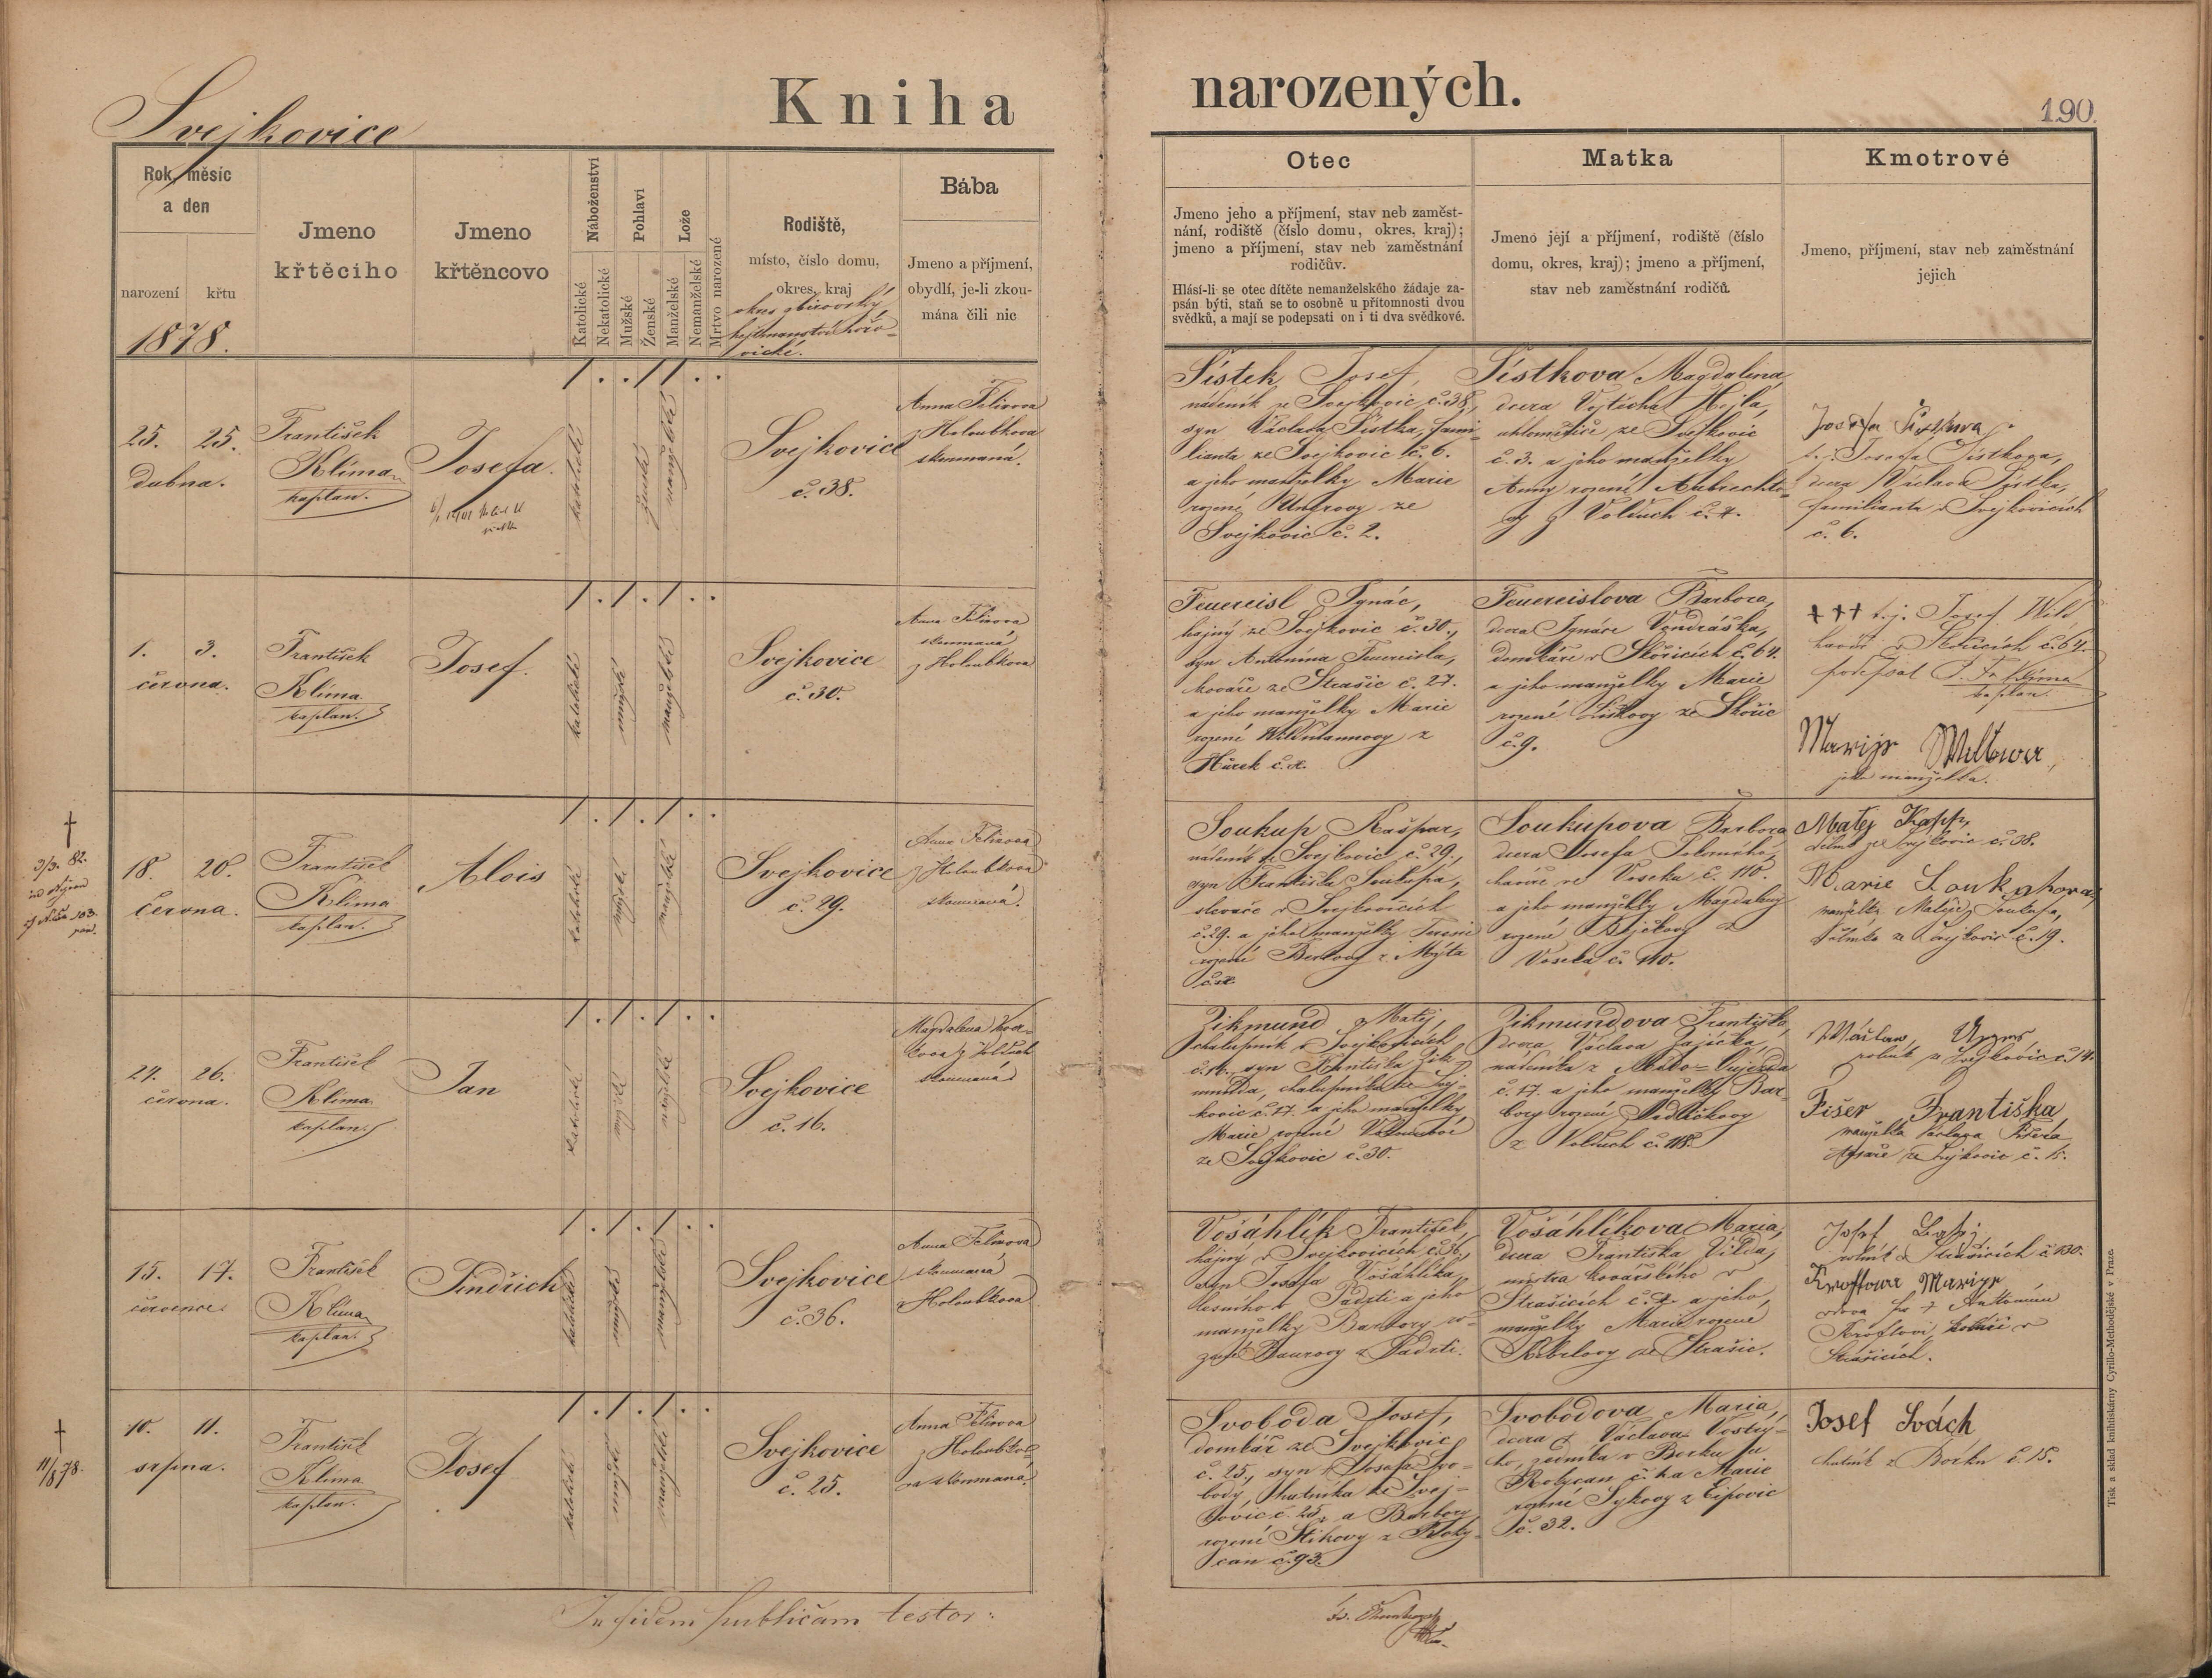 Svejkovice
Kniha
narozených.
190.
Rok, měsíc
a den
narození
křtu
1878.
Jmeno
křtěciho
Jmeno
křtěncovo
Náboženství
Katolické
Nekatolické
Pohlaví
Mužské
Ženské
Lože
Manželské
Nemanželské
Mrtvo narozené
Rodiště,
místo, číslo domu,
okres, kraj
okres zbirovský,
hejtmanství hořo-
vické.
Bába
Jmeno a příjmení,
obydlí, je-li zkou-
mána čili nic
Otec
Jmeno jeho a příjmení, stav neb zaměst-
nání, rodiště (číslo domu, okres, kraj);
jmeno a příjmení, stav neb zaměstnání
rodičův.
Hlásí-li se otec dítěte nemanželského žádaje za-
psán býti, staň se to osobně u přítomnosti dvou
svědků, a mají se podepsati on i ti dva svědkové.
Matka
Jmeno její a příjmení, rodiště (číslo
domu, okres, kraj); jmeno a příjmení,
stav neb zaměstnání rodičů
Kmotrové
Jmeno, příjmení, stav neb zaměstnání
jejich
25. 25.
dubna.
František
Klíma
kaplan.
Josefa.
katolické
ženské
manželské
Svejkovice
č. 38.
Anna Felixova
z Holoubkova
skoumaná.
Šístek Josef,
nádeník ze Svejkovic č. 38,
syn Václava Šístka, fami-
lianta ze Svejkovic č. 6.
a jeho manželky Marie
rozené Ungrovy ze
Svejkovic č. 2.
Šístkova Magdalena,
dcera Vojtěcha Hejla,
uhlomíříče, ze Svejkovic
č. 3. a jeho manželky
Anny rozené Aubrechto-
vy z Volduch č. 7.
Josefa Šistkova
t. j. Josefa Šístkova,
dcera Václava Šístka,
familianta v Svejkovicích
č. 6.
1. 3.
června.
František
Klíma
kaplan.
Josef.
katolické
manželské
Svejkovice
č. 30.
Anna Felixova
skoumaná
z Holoubkova
Feuereisl Ignác,
hajný ze Svejkovic č. 30.,
syn Antonína Feuereisla,
kováře ze Strašic č. 27.
a jeho manželky Marie
rozené Wildmannovy z
Hůrek č. x.
Feuereislova Barbora,
dcera Ignáce Vondráška,
domkáře v Skořicích č. 64.
a jeho manželky Marie
rozené Liškovy ze Skořic
č. 9.
+++ t. j. Josef Wild
havíř v Skořicích č. 64.
podepsal P. Fr. Klíma
kaplan.
Marije Wildova,
jeho manželka.
†
3/3. 82.
18. 20.
června.
František
Klíma
kaplan.
Alois
katolické
manželské
Svejkovice
č. 29.
Anna Felixova
z Holoubkova
skoumaná.
Soukup Kašpar,
nádeník ze Svejkovic č. 29.,
syn Františka Soukupa,
slevače v Svejkovicích
č. 29. a jeho manželky Teresie
rozené Berlovy z Mýta
č. x.
Soukupova Barbora
dcera Josefa
havíře ve Voseku č. 110.
a jeho manželky Magdaleny
rozené
Voseka č. 110.
Matěj Kapp,
dělník ze Svejkovic č. 38.
Marie Soukupova,
manželka Matěje Soukupa,
dělníka ze Svejkovic č. 19.
24. 26.
června.
František
Klíma
kaplan.
Jan
katolické
manželské
Svejkovice
č. 16.
Magdalena
z Volduch
skoumaná
Zikmund Matěj,
chalupník v Svejkovicích
č. 16., syn Františka Zik-
munda, chalupníka ze Svej-
kovic č. 17. a jeho manželky
Marie rozené
ze Svejkovic č. 30.
Zikmundova Františka,
dcera Václava Zajíčka,
nádeníka z Město-Újezda
č. 17. a jeho manželky Bar-
bory rozené Sedláčkovy
z Volduch č. 118.
Václav Unger
rolník ze Svejkovic č. 14.
Fišer Františka
manželka Václava Fišera
ze Svejkovic č. 15.
15. 17.
července.
František
Klíma
kaplan.
Jindřich
katolické
manželské
Svejkovice
č. 36.
Anna Felixova
skoumaná
z Holoubkova
Vošáhlík František,
hajný v Svejkovicích č. 36,
syn Josefa Vošáhlíka,
lesního v Padrti a jeho
manželky Barbory ro-
zené Baurovy z Padrti.
Vošáhlíkova Maria,
dcera Františka Vilda,
mistra kovářského v
Strašicích č. 7. a jeho
manželky Marie rozené
ze Strašic.
Josef
rolník v Strašicích č. 130.
Kroftova Marije
vdova po † Antonínu
Kroftovi, v
Strašicích.
†
11/8 78.
10. 11.
srpna.
František
Klíma
kaplan.
Josef
katolické
manželské
Svejkovice
č. 25.
Anna Felixova
z Holoubko-
va skoumaná.
Svoboda Josef,
domkář ze Svejkovic
č. 25., syn Josefa Svo-
body, hutníka ze Svej-
kovic č. 25, a Barbory
rozené Stikovy z Roky-
can č. 93.
Svobodova Maria,
dcera † Václava Vostrý-
ho, zedníka v Borku u
Rokycan č. 4 a Marie
rozené Sýkovy z Ejpovic
č. 32.
Josef Svách
hutník z Borku č. 15.
In fidem publicam testor:
Tisk a sklad knihtiskárny Cyrillo-Methodějské v Praze.